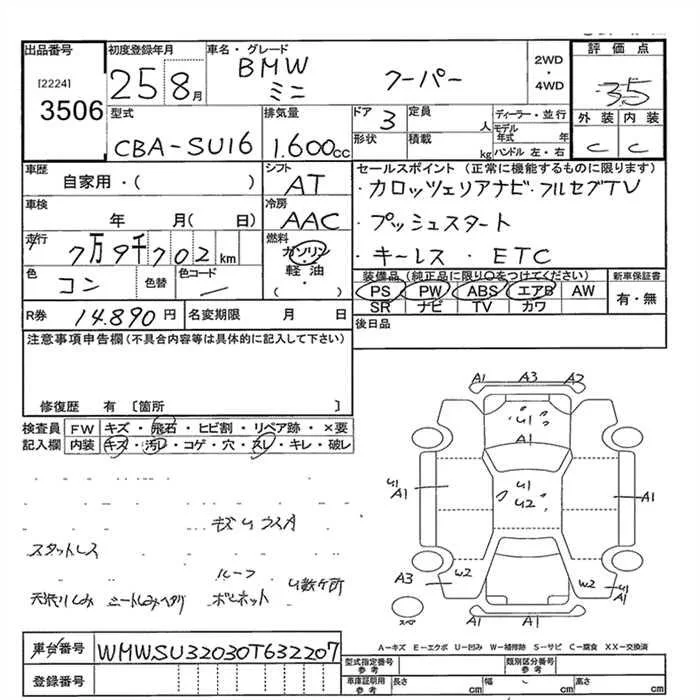 出品番号 初度登録年月 車名・グレード 評価点
[2224]
3506
25 8月
BMW
ミニ クーパー
2WD・4WD
3.5
外装 内装
C C
型式 排気量 ドア 定員 人 ディーラー・並行
CBA-SU16 1.600cc 3
形状 積載 kg モデル年式 年
ハンドル 左・右
車歴 シフト セールスポイント (正常に機能するものに限ります)
自家用・( ) AT
・カロッツェリアナビ・フルセグTV
車検 冷房
年 月( 日) AAC
・プッシュスタート
走行 燃料
7万9千702km ガソリン・軽油
( )
・キーレス・ETC
色 色替 色コード
コン
装備品(純正品に限り○をつけてください) 新車保証書
PS PW ABS エアB AW 有・無
SR ナビ TV カワ
R券 14.890円 名変期限 月 日
後日品
注意事項申告欄(不具合内容等は具体的に記入して下さい)
修復歴 有 [箇所 ]
検査員記入欄
FW キズ・飛石・ヒビ割・リペア跡・×要
内装 キズ・汚レ・コゲ・穴・スレ・キレ・破レ
スタットレス
ルーフ
ボンネット
U数ヶ所
A1 A3 A2
U1
A1
U1
A1
U1
U2
A1
A3 W2 W2 A1
スペア
A1
A-キズ E-エクボ U-凹み W-補修跡 S-サビ C-腐食 XX-交換済
車台番号 WMWSU32030T632207
登録番号
型式指定番号 参考 類別区分番号 参考
車庫証明用 参考 長さ cm 幅 cm 高さ cm